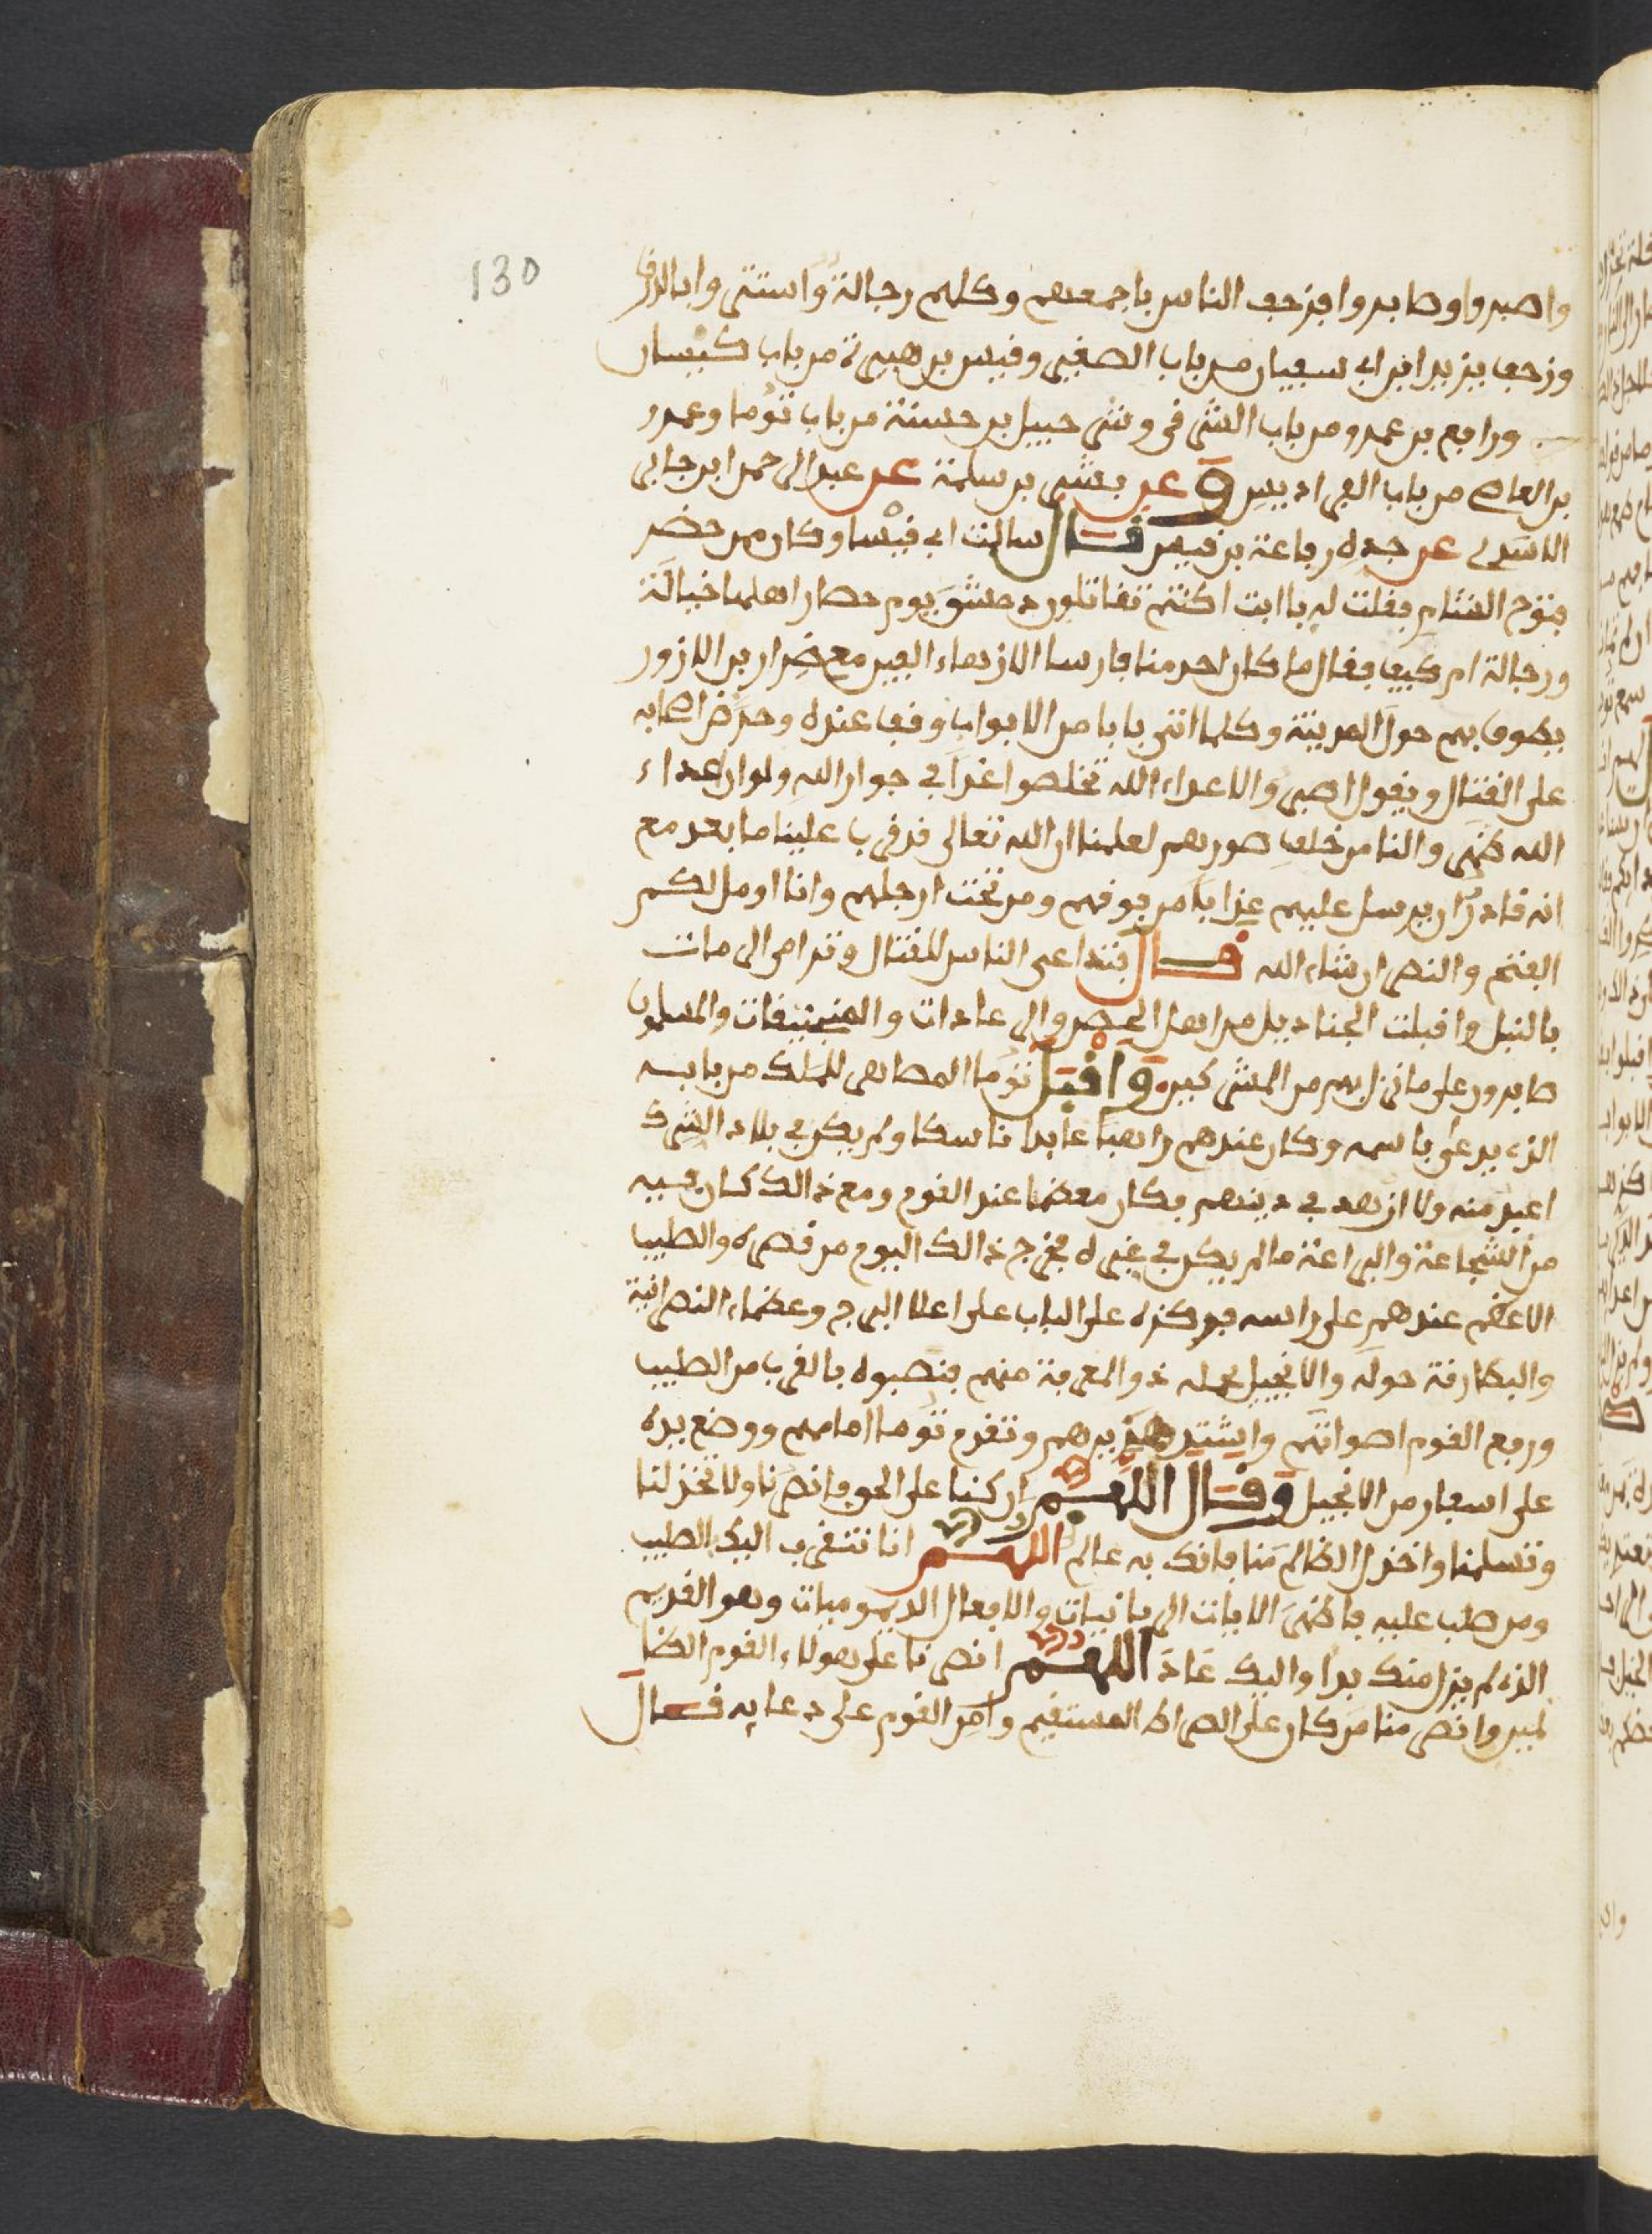 130
واصبروا وصابروا فزحف الناس باجمعهم وكلهم رجالة واستتروا بالدرق
وزحف يزيد ابن ابي سفيان من باب الصغير وقيس بن هبيرة من باب كيسان
ورافع بن عمرو من باب الشرقي وشرحبيل بن حسنة من باب توما وعمرو
بن العاص من باب الفراديس وعن بشر بن سلمة عن عبد الرحمن ابن جابر
الاسدي عن جده رفاعة بن قيس قال سالت ابي قيسا وكان ممن حضر
فتوح الشام فقلت له يا ابت اكنتم تقاتلون دمشق يوم حصار اهلها خيالة
ورجالة ام كيف فقال ما كان احد منا فارسا الا زهاء الفين مع ضرار بن الازور
يطوف بهم حول المدينة وكلما اتى بابا من الابواب وقف عنده وحرض اصحابه
على القتال ويقول اصبروا لاعداء الله تخلصوا غدا في جوار الله ولو ان اعداء
الله ظهروا لنا من خلف صورهم لعلمنا ان الله تعالى قد قرب علينا ما بعد مع
انه قادر ان يرسل عليهم عذابا من فوقهم ومن تحت ارجلهم وانا اومل لكم
الفتح والنصر ان شاء الله قال فتداعى الناس للقتال وترامى الرمات
بالنبل واقبلت الجناديل من اهل الحصن والرعادات والمنجنيقات والمسلمون
صابرون على ما نزل بهم من المشركين واقبل توما المصاهر للملك من بابه
الذي يدعى باسمه وكان عندهم راهبا عابدا ناسكا ولم يكن في بلاد الشرك
اعبد منه ولا ازهد في دينهم فكان معظما عند القوم ومع ذالك كان فيه
من الشجاعة والبراعة ما لم يكن في غيره فخرج ذالك اليوم من قصره والصليب
الاعظم عندهم على راسه فركزه على الباب على اعلا البرج وعظماء النصرانية
والبطارقة حوله والانجيل يحمله ذو المعرفة منهم فنصبوه بالقرب من الصليب
ورفع القوم اصواتهم واشتد هذيرهم وتقدم توما امامهم ووضع يده
على اسطار من الانجيل وقال اللهم ان كنا على الحق فانصرنا ولا تخذلنا
وتسلمنا واخذل الظالم منا فانك به عالم اللهم انا نتقرب اليك الصليب
ومن صلب عليه فاظهر الايات الربانيات والافعال الديموميات وهو القديم
الذي لم يزل منك بدا واليك عاد اللهم انصرنا على هولاء القوم الظا
لمين وانصر منا من كان على الصراط المستقيم وامن القوم على دعايه قال